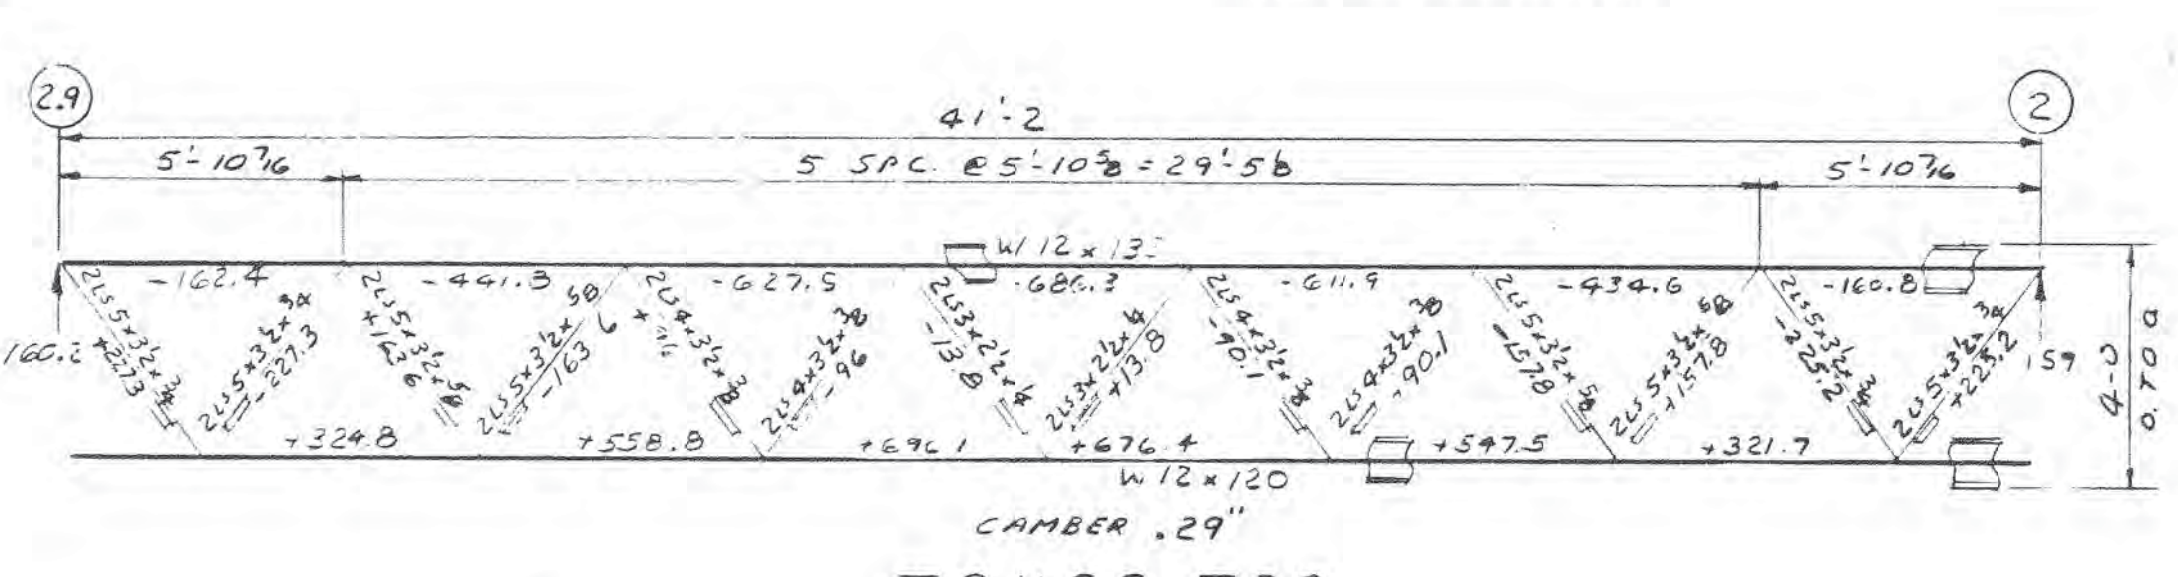 2.9
2
41'-2
5'-10 7/16
5 SPC. @ 5'-10 5/8 = 29'-5 1/8
5'-10 7/16
W 12 x
-162.4
-441.3
-627.5
-686.3
-611.9
-434.6
-160.8
2Ls 5x3½x¾
+227.3
2Ls 5x3½x¾
-227.3
2Ls 5x3½x⅝
+163.6
2Ls 5x3½x⅝
-163.6
2Ls 4x3½x⅜
+
2Ls 4x3½x⅜
-96
2Ls 3x2½x¼
-13.8
2Ls 3x2½x¼
+13.8
2Ls 4x3½x⅜
-90.1
2Ls 4x3½x⅜
+90.1
2Ls 5x3½x⅝
-157.8
2Ls 5x3½x⅝
+157.8
2Ls 5x3½x¾
-225.2
2Ls 5x3½x¾
+225.2
160.2
159
4-0
O. TO O
+324.8
+558.8
+676.4
+547.5
+321.7
W 12 x 120
CAMBER .29"